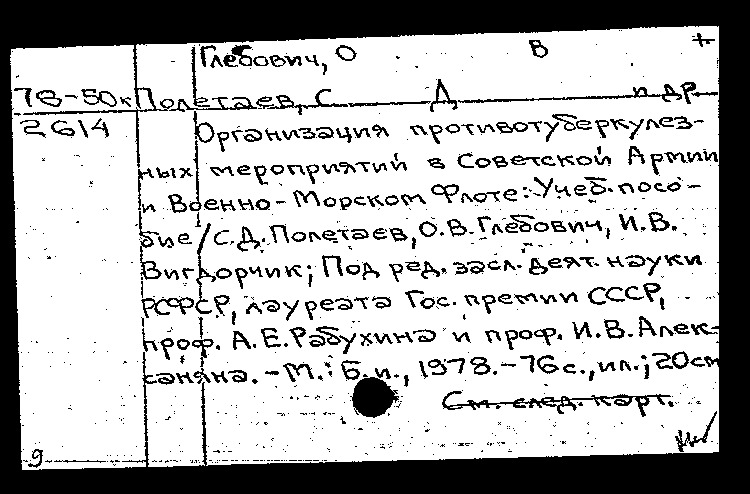 Глебович, О В +
78-50к Полетаев, С Д и др.
2614 Организация противотуберкулез-
ных мероприятий в Советской Армии
и Военно-Морском Флоте: Учеб. посо-
бие / С.Д. Полетаев, О.В. Глебович, И.В.
Вигдорчик; Под ред. засл. деят. науки
РСФСР, лауреата Гос. премии СССР,
проф. А.Е. Рабухина и проф. И.В. Алек-
саняна. - М.: Б. и., 1978. - 76 с., ил.; 20 см
См. след. карт.
9